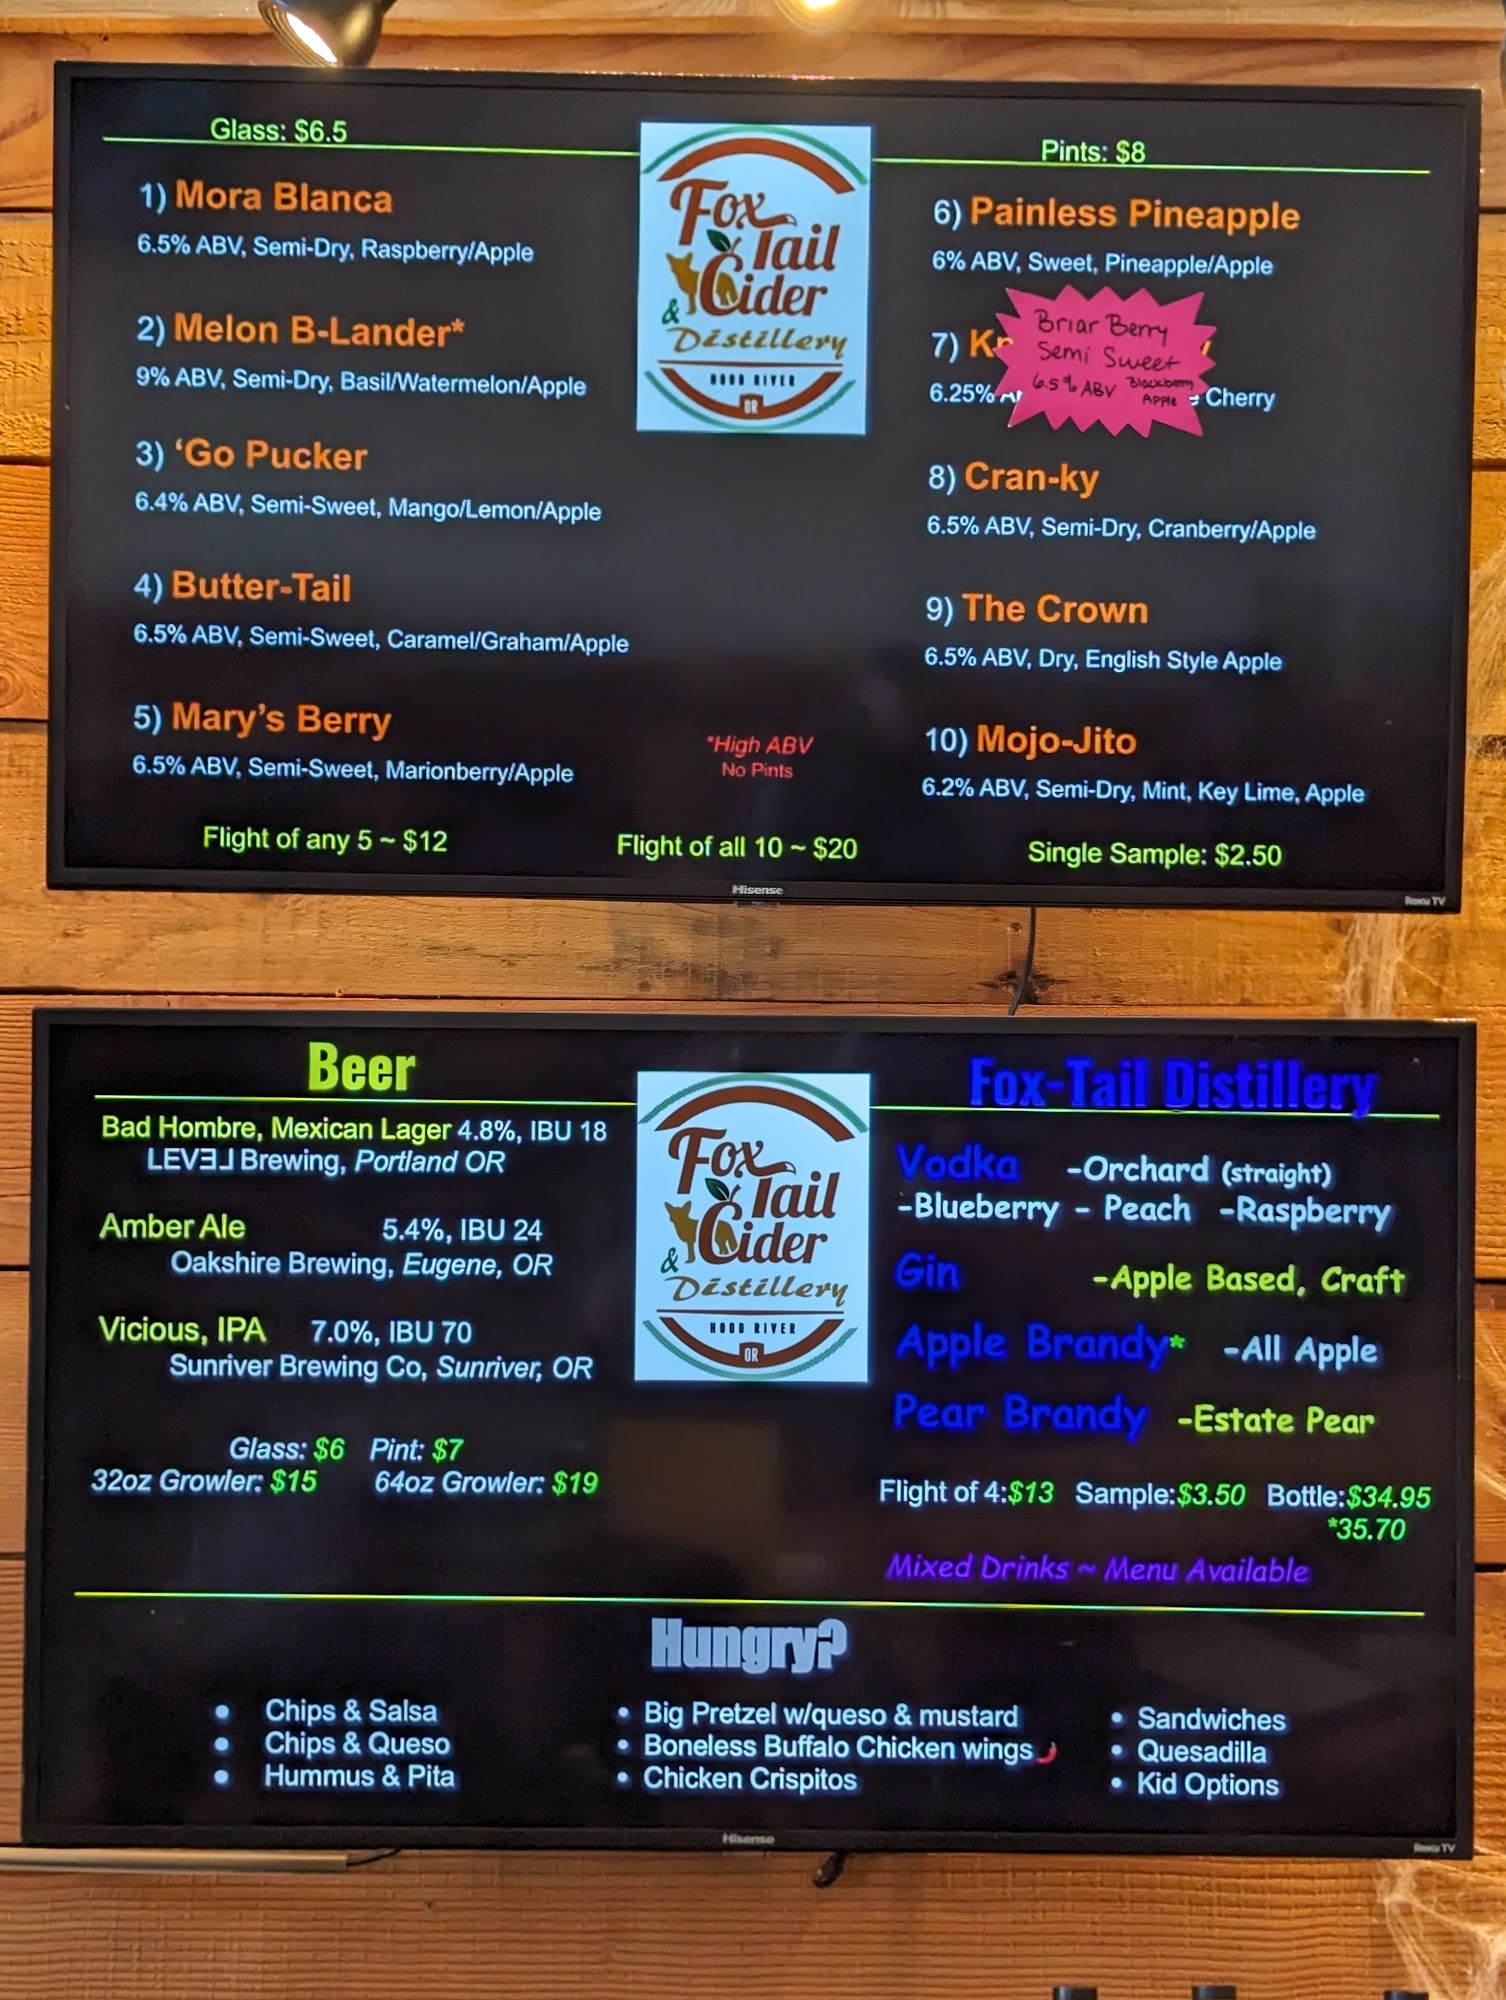 Glass: $6.5
Pints: $8
1) Mora Blanca
6.5% ABV, Semi-Dry, Raspberry/Apple
2) Melon B-Lander*
9% ABV, Semi-Dry, Basil/Watermelon/Apple
3) ‘Go Pucker
6.4% ABV, Semi-Sweet, Mango/Lemon/Apple
4) Butter-Tail
6.5% ABV, Semi-Sweet, Caramel/Graham/Apple
5) Mary’s Berry
6.5% ABV, Semi-Sweet, Marionberry/Apple
Fox
Tail
Cider
&
Distillery
HOOD RIVER
OR
*High ABV
No Pints
6) Painless Pineapple
6% ABV, Sweet, Pineapple/Apple
7)
Briar Berry
Semi Sweet
6.5% ABV Blackberry
Apple
6.25% Cherry
8) Cran-ky
6.5% ABV, Semi-Dry, Cranberry/Apple
9) The Crown
6.5% ABV, Dry, English Style Apple
10) Mojo-Jito
6.2% ABV, Semi-Dry, Mint, Key Lime, Apple
Flight of any 5 ~ $12
Flight of all 10 ~ $20
Single Sample: $2.50
Hisense
Roku TV
Beer
Bad Hombre, Mexican Lager 4.8%, IBU 18
LEVƎ⅃ Brewing, Portland OR
Amber Ale 5.4%, IBU 24
Oakshire Brewing, Eugene, OR
Vicious, IPA 7.0%, IBU 70
Sunriver Brewing Co, Sunriver, OR
Glass: $6 Pint: $7
32oz Growler: $15 64oz Growler: $19
Fox
Tail
Cider
&
Distillery
HOOD RIVER
OR
Fox-Tail Distillery
Vodka -Orchard (straight)
-Blueberry - Peach -Raspberry
Gin -Apple Based, Craft
Apple Brandy* -All Apple
Pear Brandy -Estate Pear
Flight of 4:$13 Sample:$3.50 Bottle:$34.95
*35.70
Mixed Drinks ~ Menu Available
Hungry?
• Chips & Salsa
• Chips & Queso
• Hummus & Pita
• Big Pretzel w/queso & mustard
• Boneless Buffalo Chicken wings
• Chicken Crispitos
• Sandwiches
• Quesadilla
• Kid Options
Hisense
Roku TV